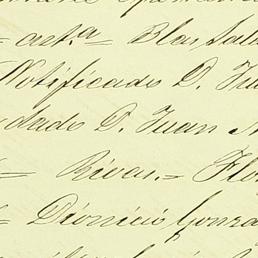 = acta = Blas Sala
Notificado D. Jua
dado D. Juan
= Rivas. = Flo
= Dionicio Gonza